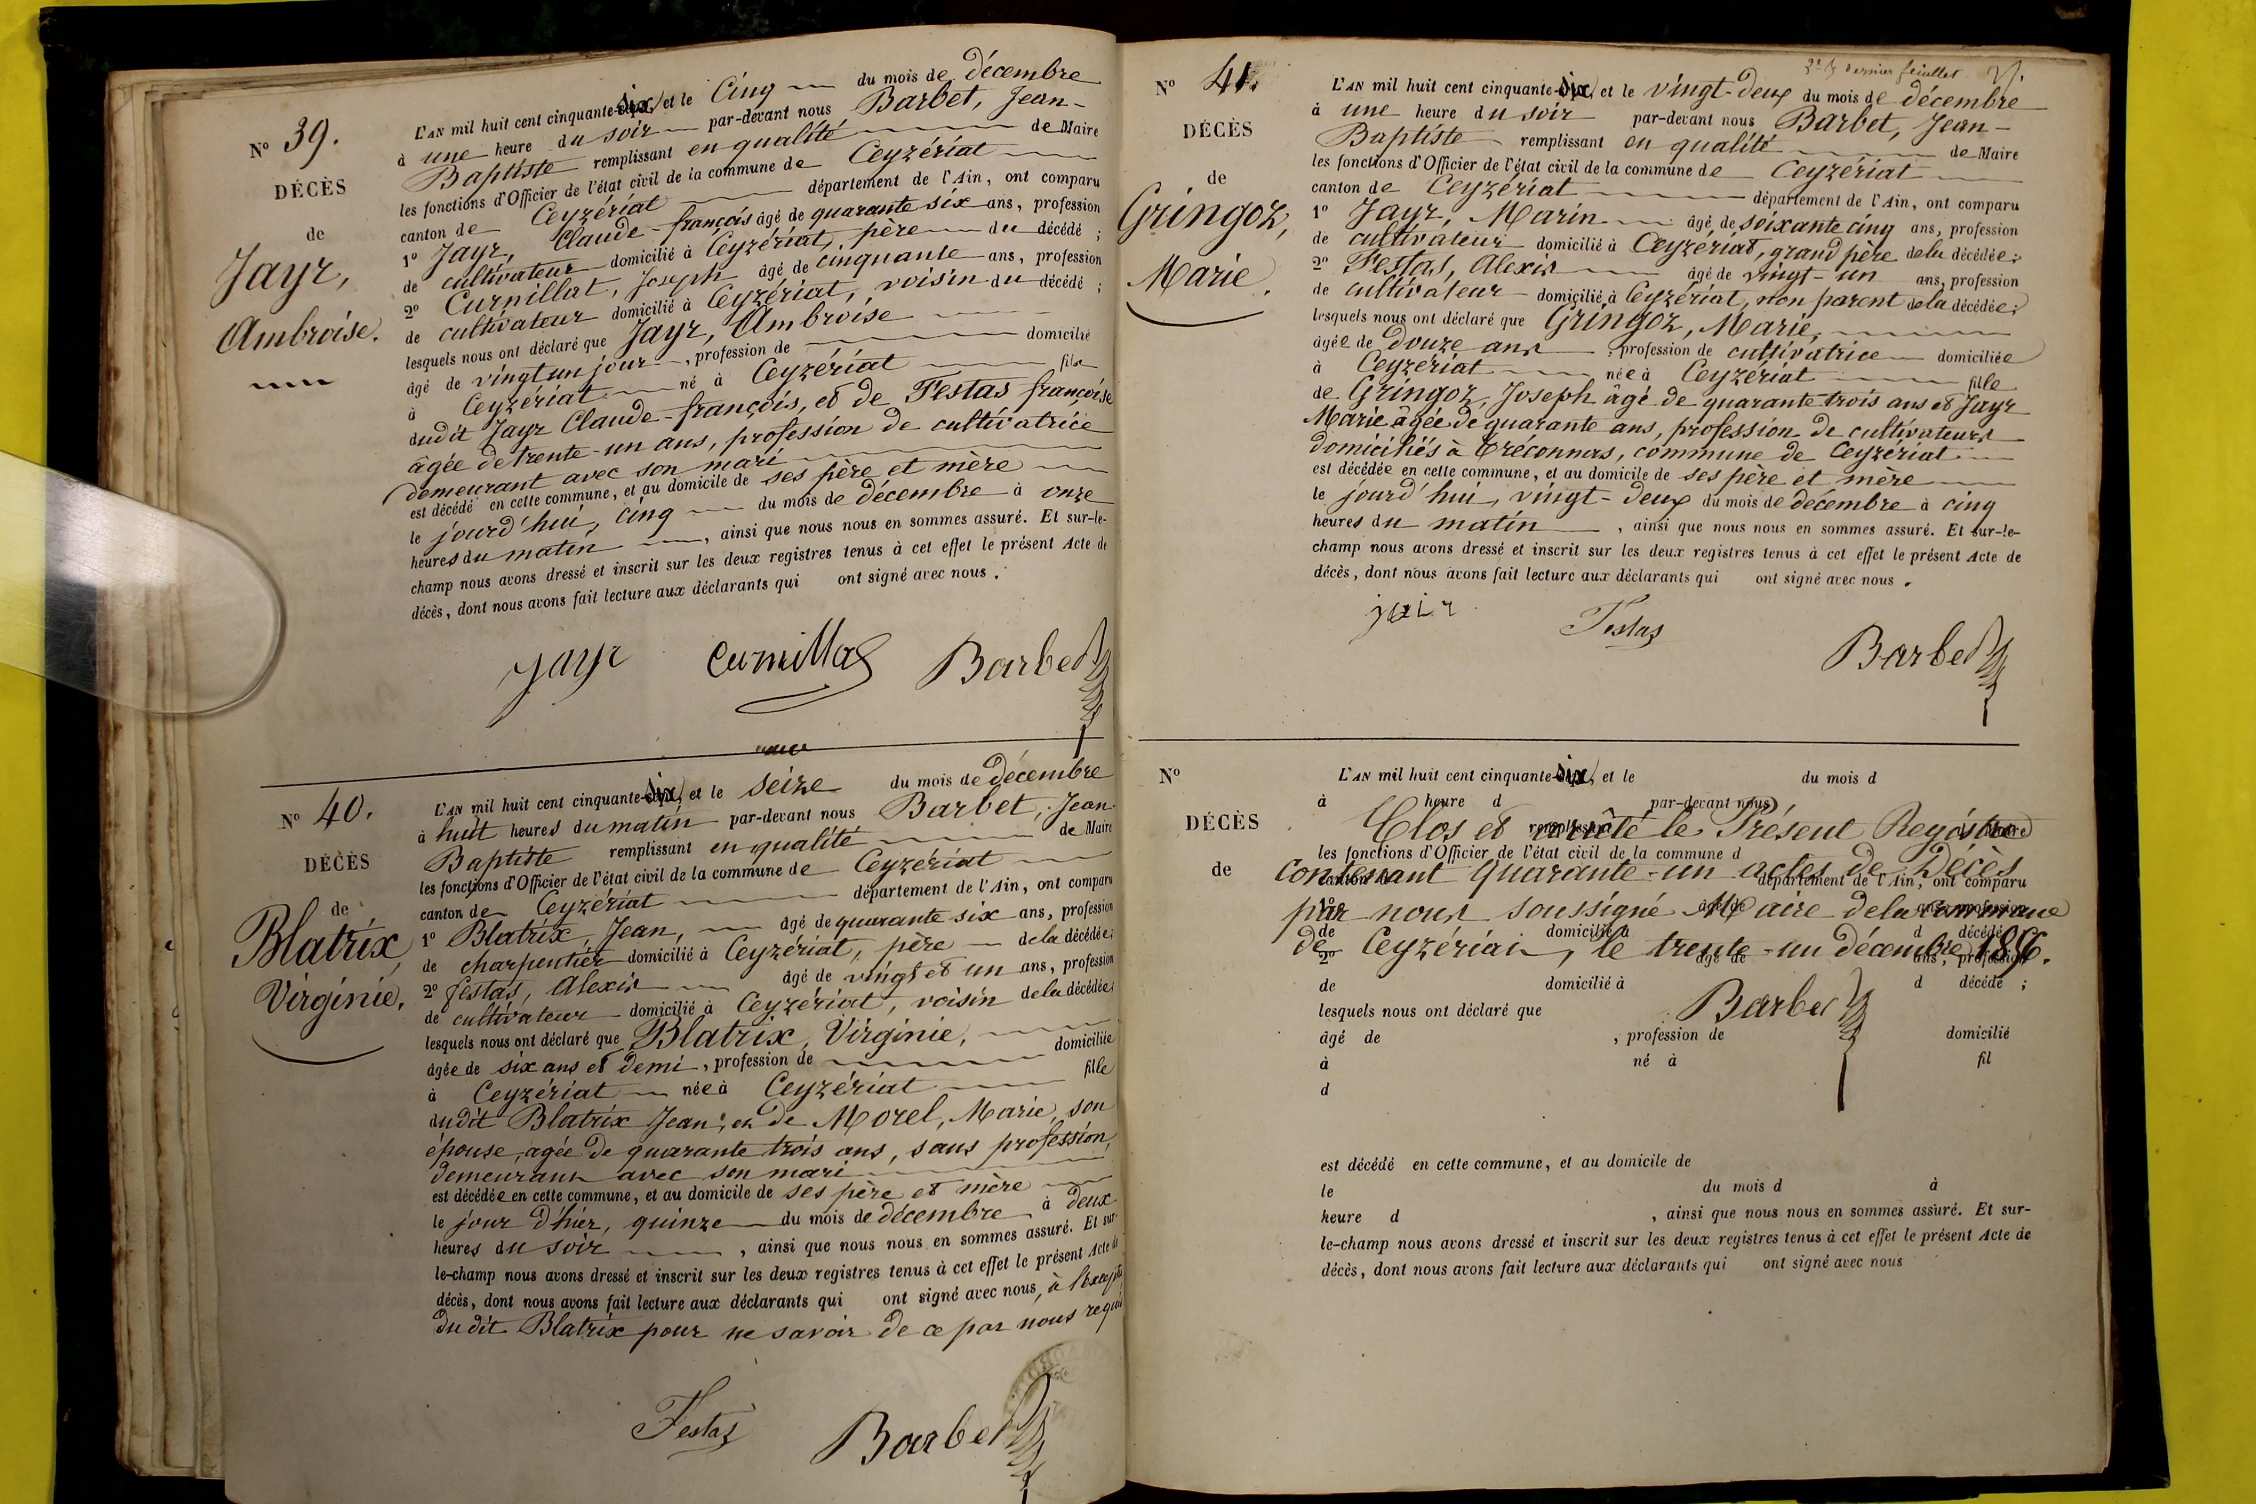 N° 39.
DÉCÈS
de
Jayr,
Ambroise.
L'AN mil huit cent cinquante-six, et le Cinq du mois de décembre
à une heure du soir par-devant nous Barbet, Jean-
Baptiste remplissant en qualité de Maire
les fonctions d'Officier de l'état civil de la commune de Ceyzériat
canton de Ceyzériat département de l'Ain, ont comparu
1° Jayr, Claude-françois âgé de quarante six ans, profession
de cultivateur domicilié à Ceyzériat, père du décédé ;
2° Curnillat, Joseph âgé de cinquante ans, profession
de cultivateur domicilié à Ceyzériat, voisin du décédé ;
lesquels nous ont déclaré que Jayr, Ambroise
âgé de vingt un jour, profession de domicilié
à Ceyzériat né à Ceyzériat fils
dudit Jayr Claude-françois, et de Festas françoise
âgée de trente-un ans, profession de cultivatrice
demeurant avec son mari
est décédé en cette commune, et au domicile de ses père et mère
le jourd'hui, cinq du mois de décembre à onze
heures du matin, ainsi que nous nous en sommes assuré. Et sur-le-
champ nous avons dressé et inscrit sur les deux registres tenus à cet effet le présent Acte de
décès, dont nous avons fait lecture aux déclarants qui ont signé avec nous.
Jayr Curnillat Barbet
N° 40.
DÉCÈS
de
Blatrix,
Virginie.
L'AN mil huit cent cinquante-six, et le seize du mois de décembre
à huit heures du matin par-devant nous Barbet, Jean-
Baptiste remplissant en qualité de Maire
les fonctions d'Officier de l'état civil de la commune de Ceyzériat
canton de Ceyzériat département de l'Ain, ont comparu
1° Blatrix, Jean, âgé de quarante six ans, profession
de charpentier domicilié à Ceyzériat, père de la décédée ;
2° festas, Alexis âgé de vingt et un ans, profession
de cultivateur domicilié à Ceyzériat, voisin de la décédée ;
lesquels nous ont déclaré que Blatrix, Virginie,
âgée de six ans et demi, profession de domiciliée
à Ceyzériat née à Ceyzériat fille
dudit Blatrix Jean, et de Morel, Marie, son
épouse, agée de quarante trois ans, sans profession,
demeurant avec son mari
est décédée en cette commune, et au domicile de ses père et mère
le jour d'hier, quinze du mois de décembre à deux
heures du soir, ainsi que nous nous en sommes assuré. Et sur-
le-champ nous avons dressé et inscrit sur les deux registres tenus à cet effet le présent Acte de
décès, dont nous avons fait lecture aux déclarants qui ont signé avec nous, à l'exception
du dit Blatrix pour ne savoir de ce par nous requis
Festas Barbet
2e & dernier feuillet
N° 41.
DÉCÈS
de
Gringoz,
Marie.
L'AN mil huit cent cinquante-six, et le vingt-deux du mois de décembre
à une heure du soir par-devant nous Barbet, Jean-
Baptiste remplissant en qualité de Maire
les fonctions d'Officier de l'état civil de la commune de Ceyzériat
canton de Ceyzériat département de l'Ain, ont comparu
1° Jayr, Marin âgé de soixante cinq ans, profession
de cultivateur domicilié à Ceyzériat, grand père de la décédée ;
2° Festas, Alexis âgé de vingt-un ans, profession
de cultivateur domicilié à Ceyzériat, non parent de la décédée ;
lesquels nous ont déclaré que Gringoz, Marie,
âgée de douze ans, profession de cultivatrice domiciliée
à Ceyzériat née à Ceyzériat fille
de Gringoz, Joseph âgé de quarante trois ans et Jayr
Marie âgée de quarante ans, profession de cultivateurs
domiciliés à Tréconnas, commune de Ceyzériat
est décédée en cette commune, et au domicile de ses père et mère
le jourd'hui, vingt-deux du mois de décembre à cinq
heures du matin, ainsi que nous nous en sommes assuré. Et sur-le-
champ nous avons dressé et inscrit sur les deux registres tenus à cet effet le présent Acte de
décès, dont nous avons fait lecture aux déclarants qui ont signé avec nous.
jair Festas Barbet
N°
DÉCÈS
de
L'AN mil huit cent cinquante-six, et le du mois d
à heure d par-devant nous
Clos et arrêté le Présent Registre
les fonctions d'Officier de l'état civil de la commune d
contenant quarante-un actes de Décès
canton d département de l'Ain, ont comparu
par nous soussigné Maire de la commune
1° âgé de ans, profession
de domicilié à d décédé ;
de Ceyzériat, le trente-un décembre 1856.
2° âgé de ans, profession
de domicilié à d décédé ;
lesquels nous ont déclaré que
Barbet
âgé de , profession de domicilié
à né à fil
d
est décédé en cette commune, et au domicile de
le du mois d à
heure d , ainsi que nous nous en sommes assuré. Et sur-
le-champ nous avons dressé et inscrit sur les deux registres tenus à cet effet le présent Acte de
décès, dont nous avons fait lecture aux déclarants qui ont signé avec nous